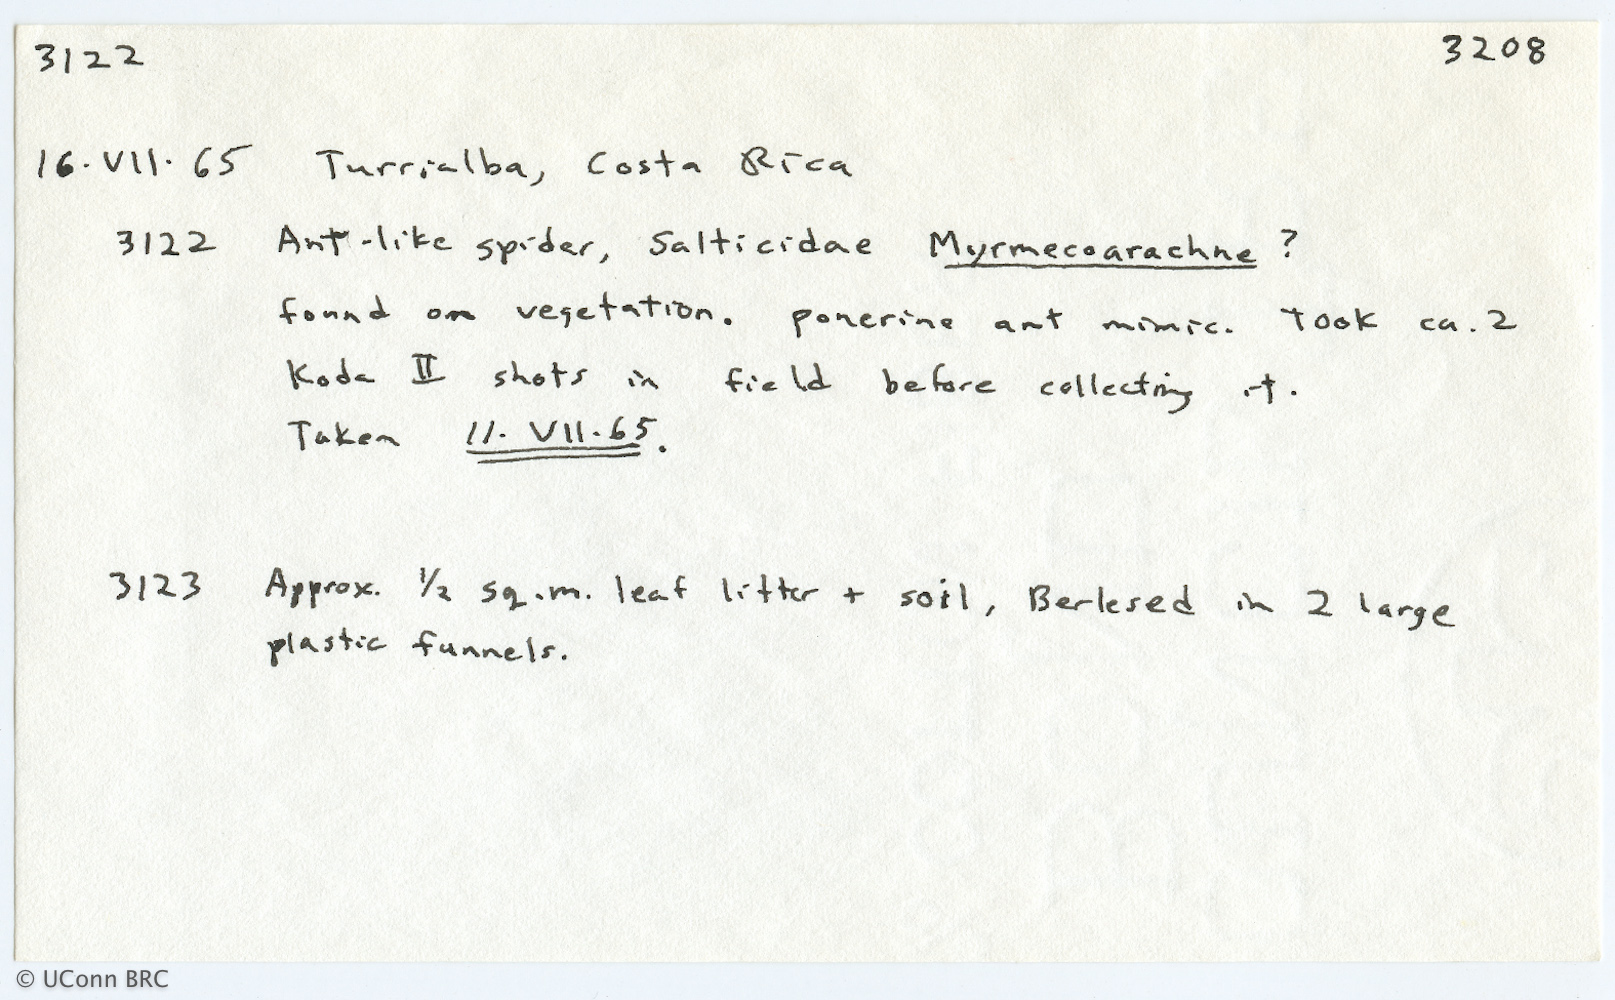 3122 3208
16. VII. 65 Turrialba, Costa Rica
3122 Ant-like spider, Salticidae Myrmecoarachne ?
found on vegetation. ponerine ant mimic. Took ca. 2
Koda II shots in field before collecting it.
Taken 11. VII. 65.
3123 Approx. 1/2 sq. m. leaf litter + soil, Berlesed in 2 large
plastic funnels.
© UConn BRC